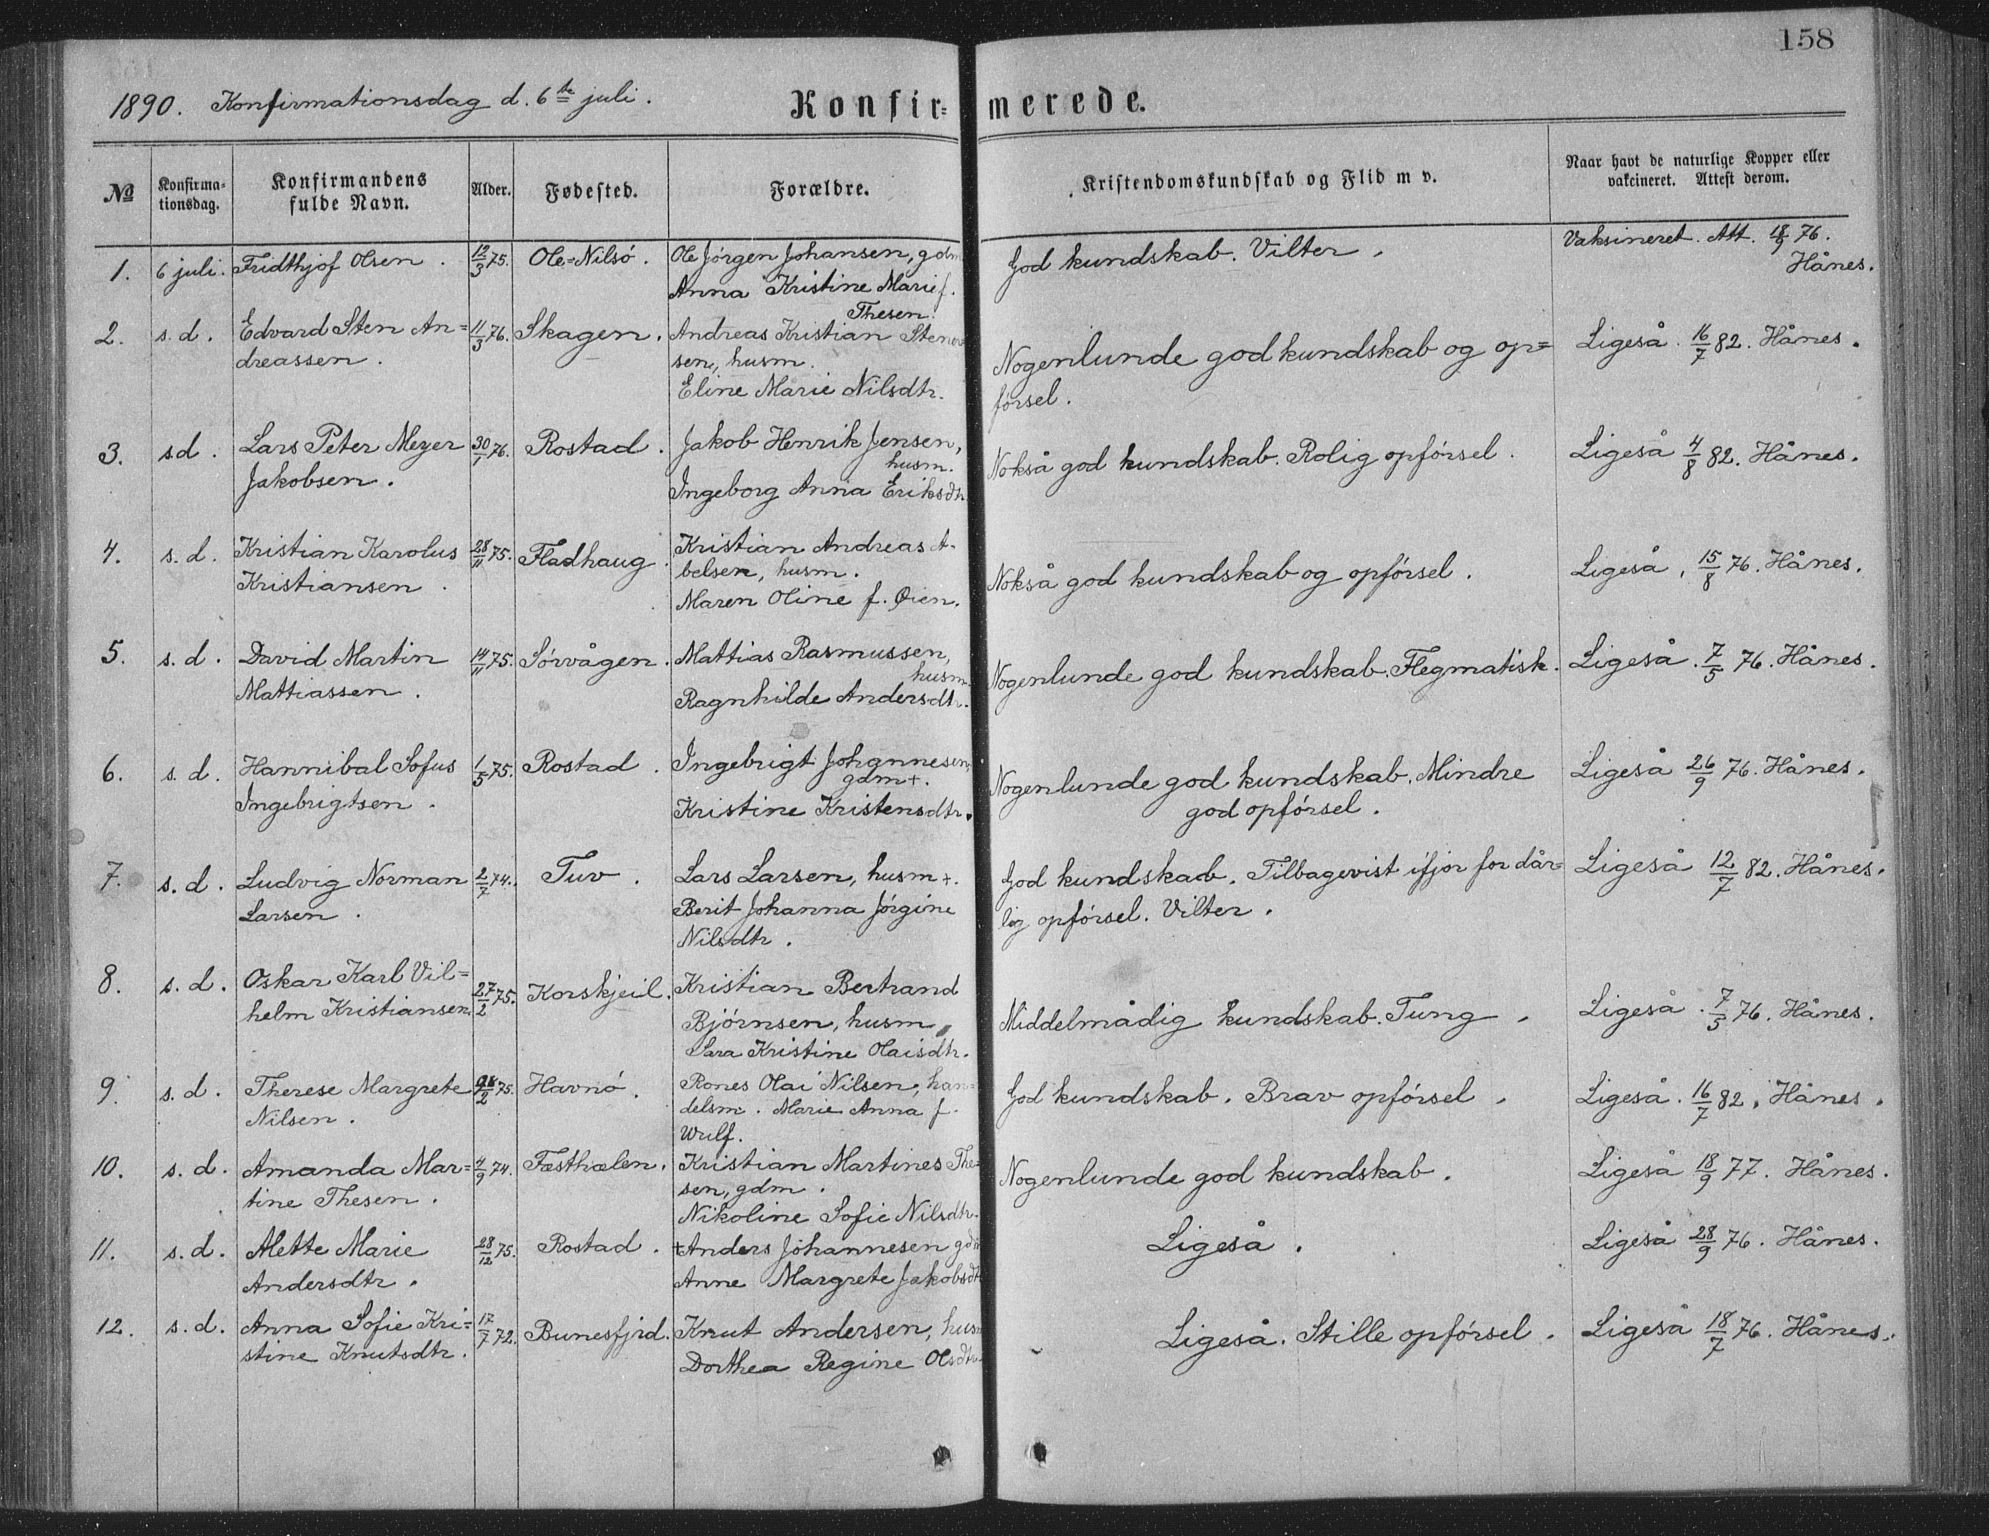 158
1890. Konfirmationsdag d. 6te juli.
Konfir=merede.
№ Konfirma-tionsdag. Konfirmandens fulde Navn. Alder. Fødested. Forældre. Kristendomskundskab og Flid m v. Naar havt de naturlige Kopper eller vakcineret. Attest derom.
1. 6 juli. Fridthjof Olsen. 12/3 75. Ole=Nilsö. Ole Jörgen Johansen, gdm
Anna Kristine Marie f.
Thesen.
God kundskab. Vilter.
Vaksineret. Att. 76.
Hånes.
2. s. d. Edvard Sten An=
dreassen.
11/3 76. Skagen. Andreas Kristian
sen, husm.
Eline Marie Nilsdtr.
Nogenlunde god kundskab og op=
försel.
Ligeså. 16/7 82. Hånes.
3. s d. Lars Peter Meyer
Jakobsen.
30/1 76. Rostad. Jakob Henrik Jensen,
husm.
Ingeborg Anna Eriksdtr
Nokså god kundskab. Rolig opförsel.
Ligeså 4/8 82. Hånes.
4. s. d. Kristian Karolus
Kristiansen.
28/11 75. Fladhaug. Kristian Andreas A-
belsen, husm.
Maren Oline f. Øien.
Nokså god kundskab og opförsel.
Ligeså, 15/8 76. Hånes.
5. s. d. David Martin
Mattiassen.
14/11 75. Sörvågen. Mattias Rasmussen,
husm.
Ragnhilde Andersdtr.
Nogenlunde god kundskab. Flegmatisk.
Ligeså. 7/5 76. Hånes.
6. s. d. Hannibal Sofus
Ingebrigtsen.
1/5 75. Rostad. Ingebrigt Johannesen,
gdm+.
Kristine Kristensdtr.
Nogenlunde god kundskab. Mindre
god opförsel.
Ligeså 26/9 76. Hånes.
7. s. d. Ludvig Norman
Larsen.
2/7 74. Tuv. Lars Larsen, husm+.
Berit Johanna Jörgine
Nilsdtr.
God kundskab. Tilbagevist ifjor for dår=
lig opförsel. Vilter.
Ligeså 12/7 82. Hånes.
8. s. d. Oskar Karl Vil=
helm Kristiansen.
27/2 75. Korskjeil. Kristian Bertrand
Björnsen, husm,
Sara Kristine Olaisdtr.
Middelmådig kundskab. Tung.
Ligeså. 7/5 76. Hånes.
9. s. d. Therese Margrete
Nilsen.
75. Havnö. Rones Olai Nilsen, han=
delsm. Marie Anna f.
Wulf.
God kundskab. Brav opförsel.
Ligeså. 16/7 82. Hånes.
10. s. d. Amanda Mar=
tine Thesen.
4/9 74. Fæsthælen. Kristian Martines The=
sen, gdm.
Nikoline Sofie Nilsdtr.
Nogenlunde god kundskab.
Ligeså 18/9 77. Hånes.
11. s. d. Alette Marie
Andersdtr.
28/12 75. Rostad. +Anders Johannesen gdm
Anne Margrete Jakobsdtr
Ligeså.
Ligeså 28/9 76. Hånes.
12. s. d. Anna Sofie Kri=
stine Knutsdtr.
17/7 72. Bunesfjrd. Knut Andersen, husm
Dorthea Regine Olsdtr.
Ligeså. Stille opförsel.
Ligeså 18/7 76. Hånes.